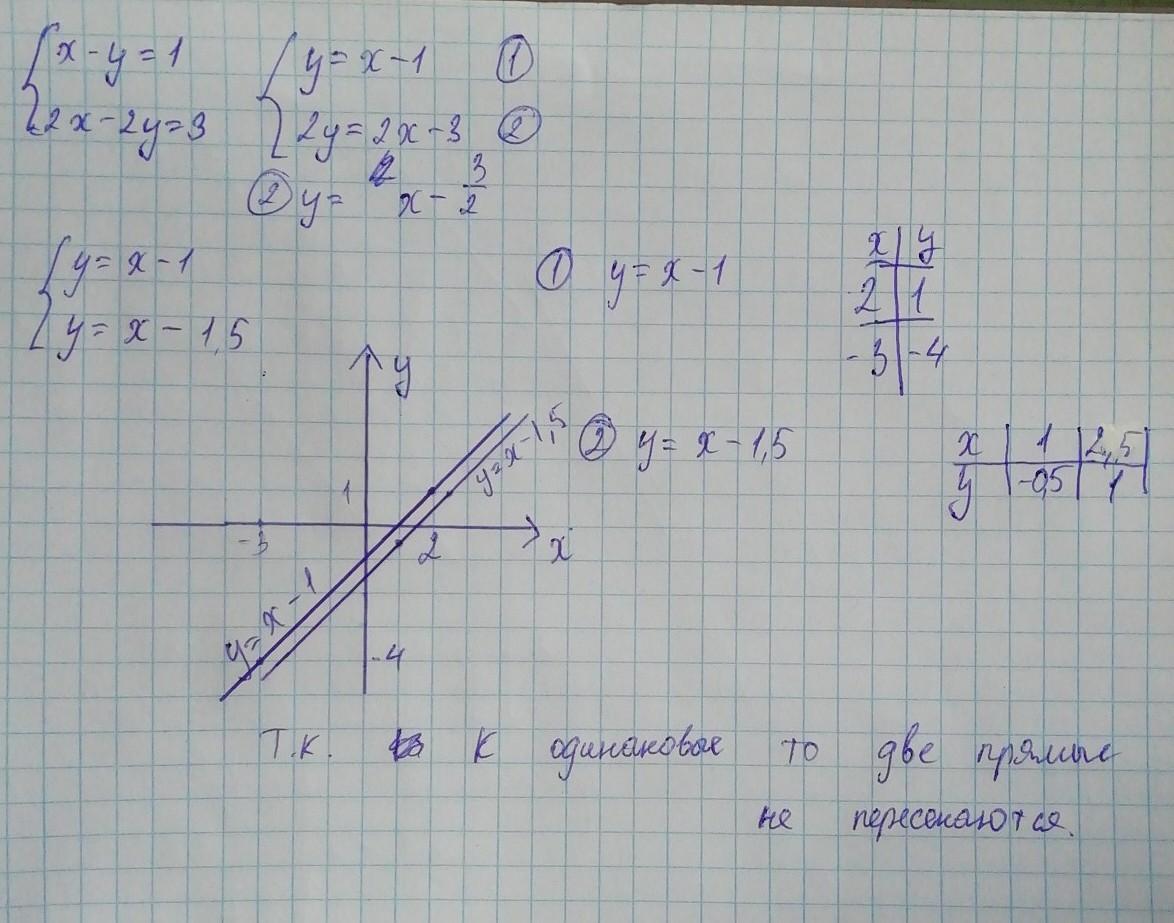 { x - y = 1
{ 2x - 2y = 3
{ y = x - 1 ①
{ 2y = 2x - 3 ②
② y = x - 3/2
{ y = x - 1
{ y = x - 1,5
① y = x - 1
x | y
2 | 1
-3 | -4
② y = x - 1,5
x | 1 | 2,5
y | -0,5 | 1
y
y = x - 1,5
1
-3
2
x
y = x - 1
-4
Т.К. К одинаковые то две прямые
не пересекаются.